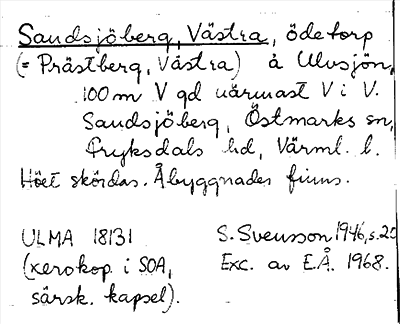 Sandsjöberg, Västra, ödetorp
(= Prästberg, Västra) å Ulvsjön,
100 m V gd närmast V i V.
Sandsjöberg, Östmarks sn,
Fryksdals hd, Värml. l.
Höet skördas. Åbyggnader finns.
ULMA 18131
(xerokop. i SOA,
särsk. kapsel).
S. Svensson 1946, s. 25
Exc. av E.Å. 1968.